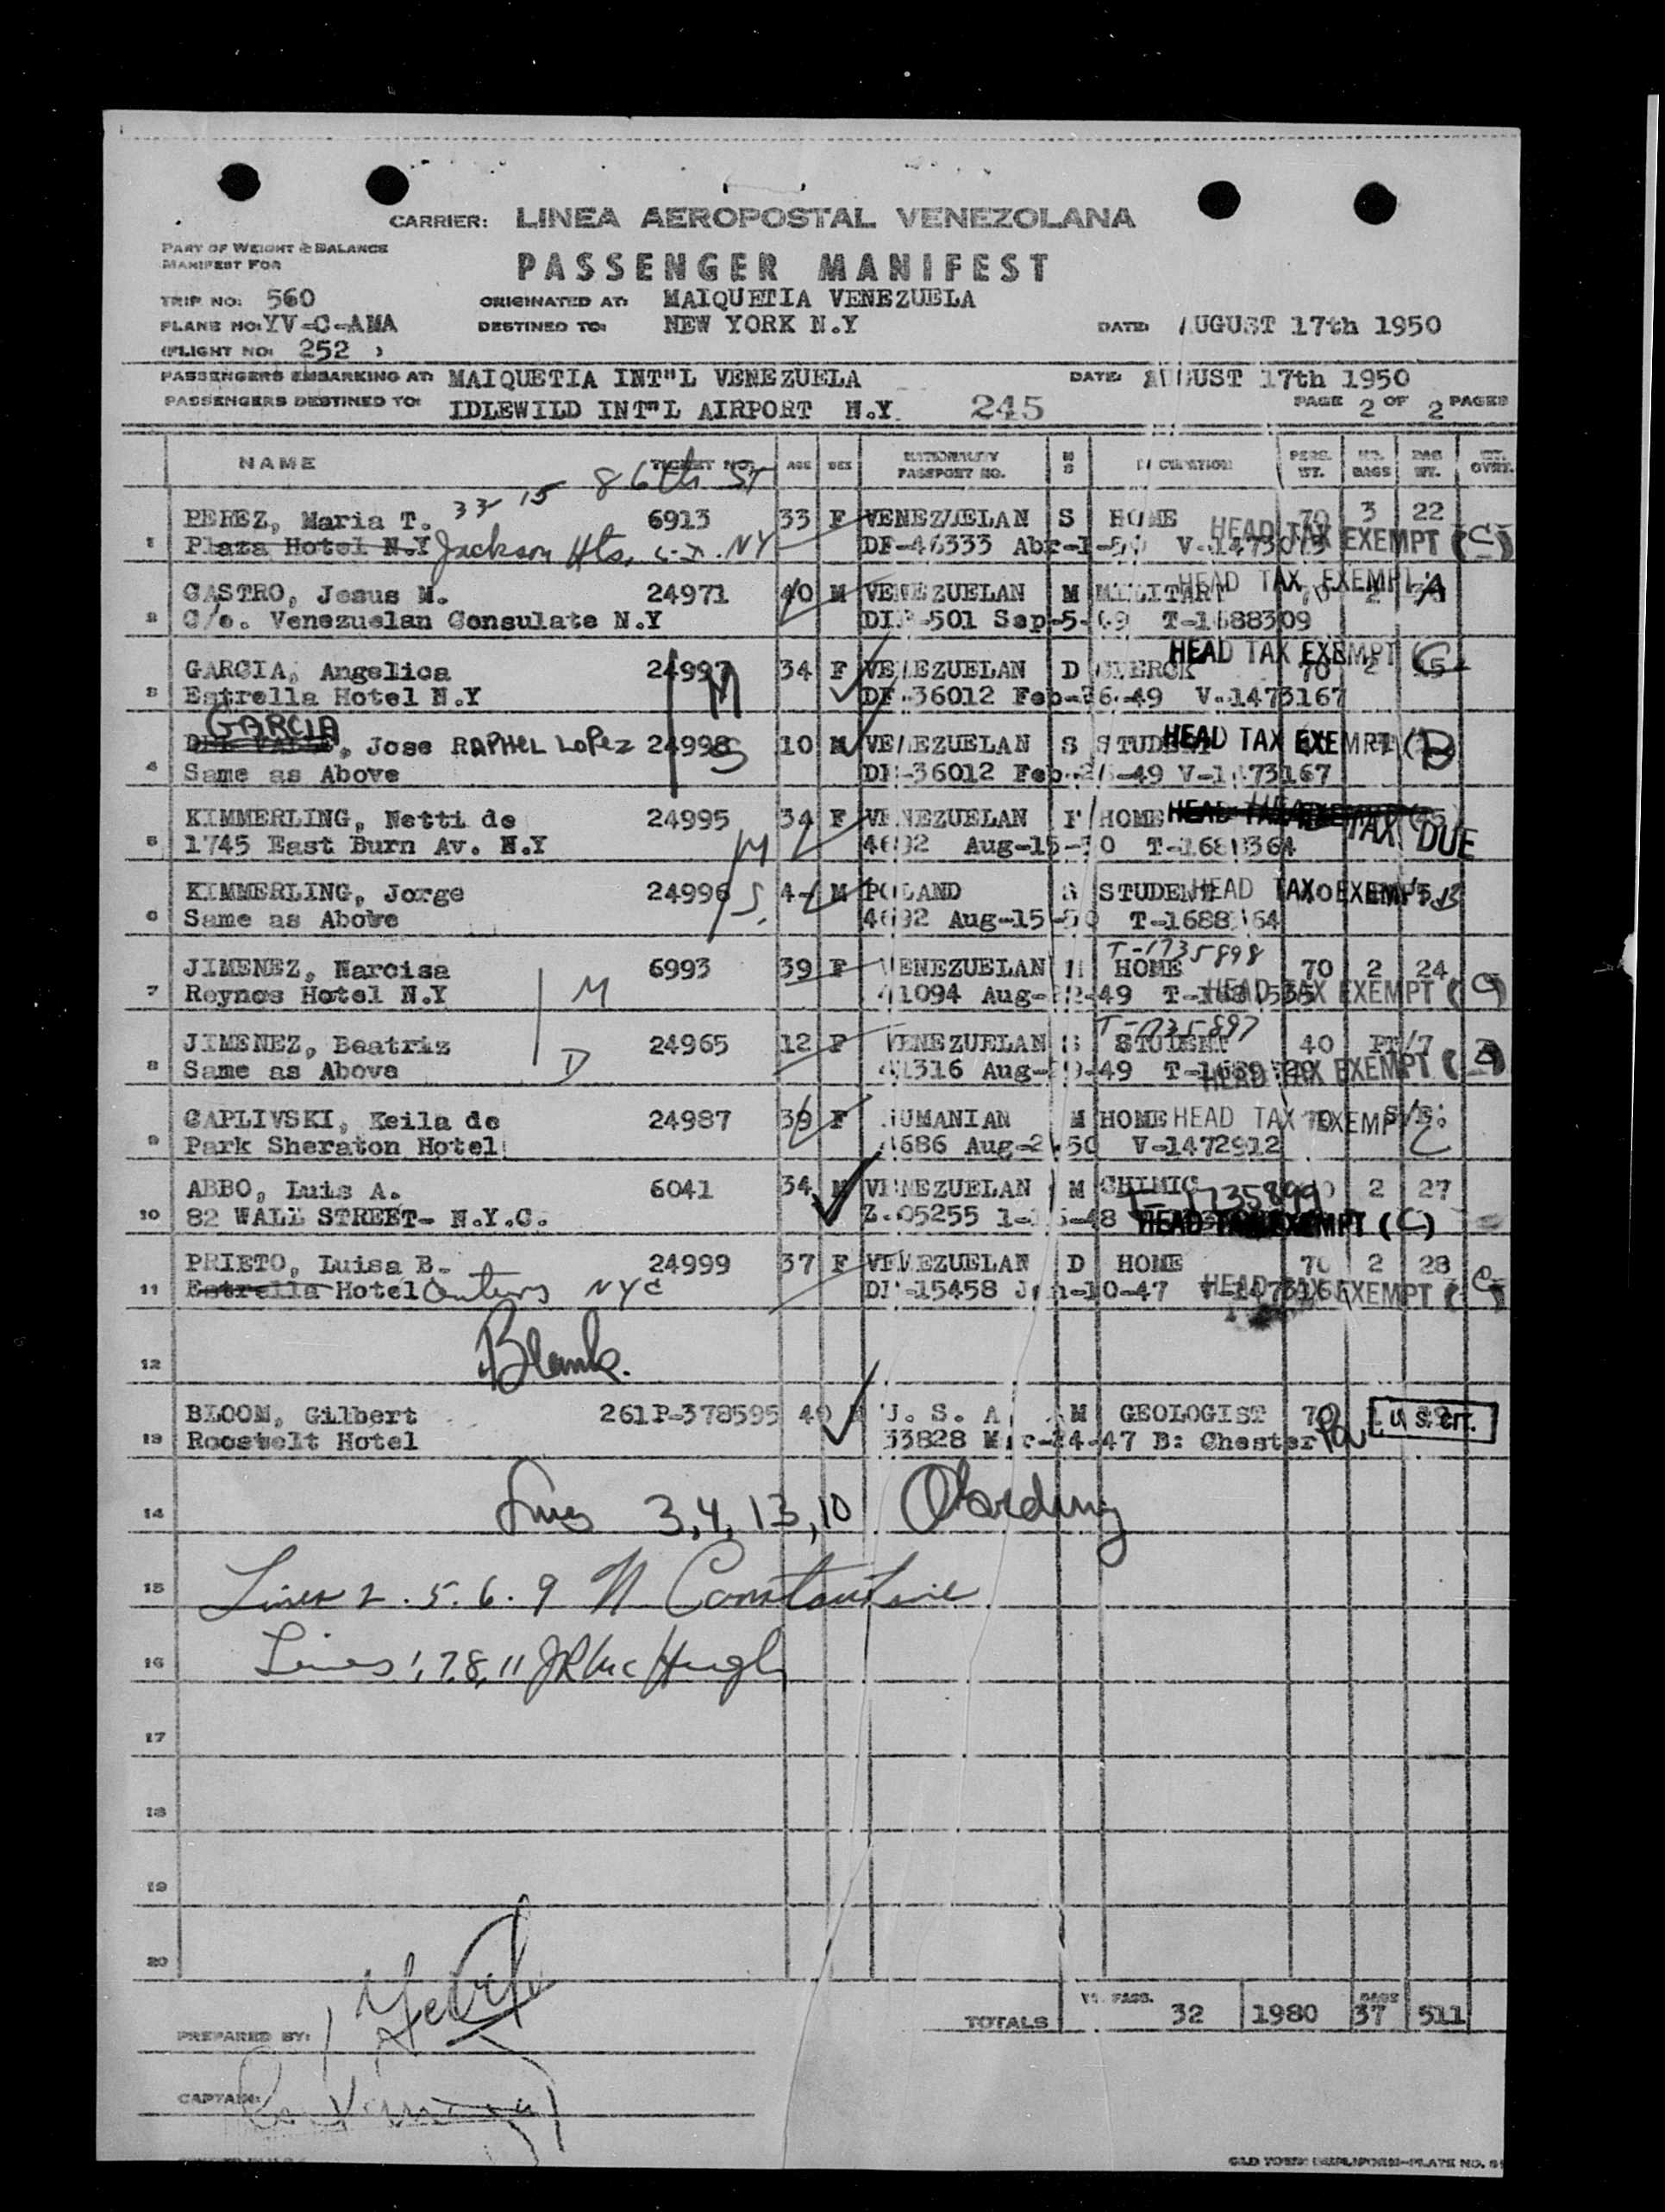 CARRIER: LINEA AEROPOSTAL VENEZOLANA
PART OF WEIGHT & BALANCE
MANIFEST FOR
PASSENGER MANIFEST
TRIP NO: 560 ORIGINATED AT: MAIQUETIA VENEZUELA
PLANE NO: YV-C-AMA DESTINED TO: NEW YORK N.Y DATE: AUGUST 17th 1950
(FLIGHT NO: 252 )
PASSENGERS EMBARKING AT: MAIQUETIA INT"L VENEZUELA DATE: AUGUST 17th 1950
PASSENGERS DESTINED TO: IDLEWILD INT"L AIRPORT N.Y. 245 PAGE 2 OF 2 PAGES
NAME TICKET NO. AGE SEX NATIONALITY PASSPORT NO. M S OCCUPATION PERS. WT. NO. BAGS BAG WT. WT. OVRT.
33-15 86th ST
PEREZ, Maria T. 6913 33 F VENEZUELAN S HOME 70 3 22
1 Plaza Hotel N.Y Jackson Hts. L.I. NY DF-46333 Abr-1-50 HEAD TAX EXEMPT (C)
CASTRO, Jesus M. 24971 40 M VENEZUELAN M MILITARY HEAD TAX EXEMPT A
2 C/o. Venezuelan Consulate N.Y DIP-501 Sep-5-49 T-1688309
GARCIA, Angelica 24997 M 34 F VENEZUELAN D HEAD TAX EXEMPT C 70 2
3 Estrella Hotel N.Y DF-36012 Feb-26-49 V-1473167
GARCIA
, Jose RAPHEL LOPEZ 24998 S 10 M VENEZUELAN S STUDENT HEAD TAX EXEMPT (B)
4 Same as Above DF-36012 Feb-26-49 V-1473167
KIMMERLING, Netti de 24995 34 F VENEZUELAN HOME HEAD TAX
5 1745 East Burn Av. N.Y M 4692 Aug-15-50 T-1688364 TAX DUE
KIMMERLING, Jorge 24996 S. 4 M POLAND S STUDENT HEAD TAX EXEMPT B
6 Same as Above 4692 Aug-15-50 T-1688364
T-1735898
JIMENEZ, Narcisa 6993 39 F VENEZUELAN M HOME 70 2 24
7 Reynos Hotel N.Y M 41094 Aug-22-49 HEAD TAX EXEMPT (C)
T-1735897
JIMENEZ, Beatriz 24965 12 F VENEZUELAN S STUDENT 40 PT/7
8 Same as Above D 41316 Aug-29-49 HEAD TAX EXEMPT
CAPLIVSKI, Keila de 24987 39 F RUMANIAN M HOME HEAD TAX EXEMPT C
9 Park Sheraton Hotel 4686 Aug-2-50 V-1472912
ABBO, Luis A. 6041 34 M VENEZUELAN M CHIMIC 2 27
T-1735899
10 82 WALL STREET- N.Y.C. HEAD TAX EXEMPT (C)
PRIETO, Luisa B. 24999 37 F VENEZUELAN D HOME 70 2 28
11 Estrella Hotel NYC DF-15458 Jan-10-47 HEAD TAX EXEMPT (C)
12 Blank.
BLOOM, Gilbert 261P-378595 40 U. S. A M GEOLOGIST 70 U.S. CIT.
13 Roosvelt Hotel 33828 Mar-24-47 B: Chester Pa
14 Lines 3,4,13,10
15 Lines 2.5.6.9 N Constantine
16 Lines 1,7,8,11 JR McHugh
17
18
19
20
TOTALS PASS. 32 1980 BAGS 37 511
PREPARED BY:
CAPTAIN: